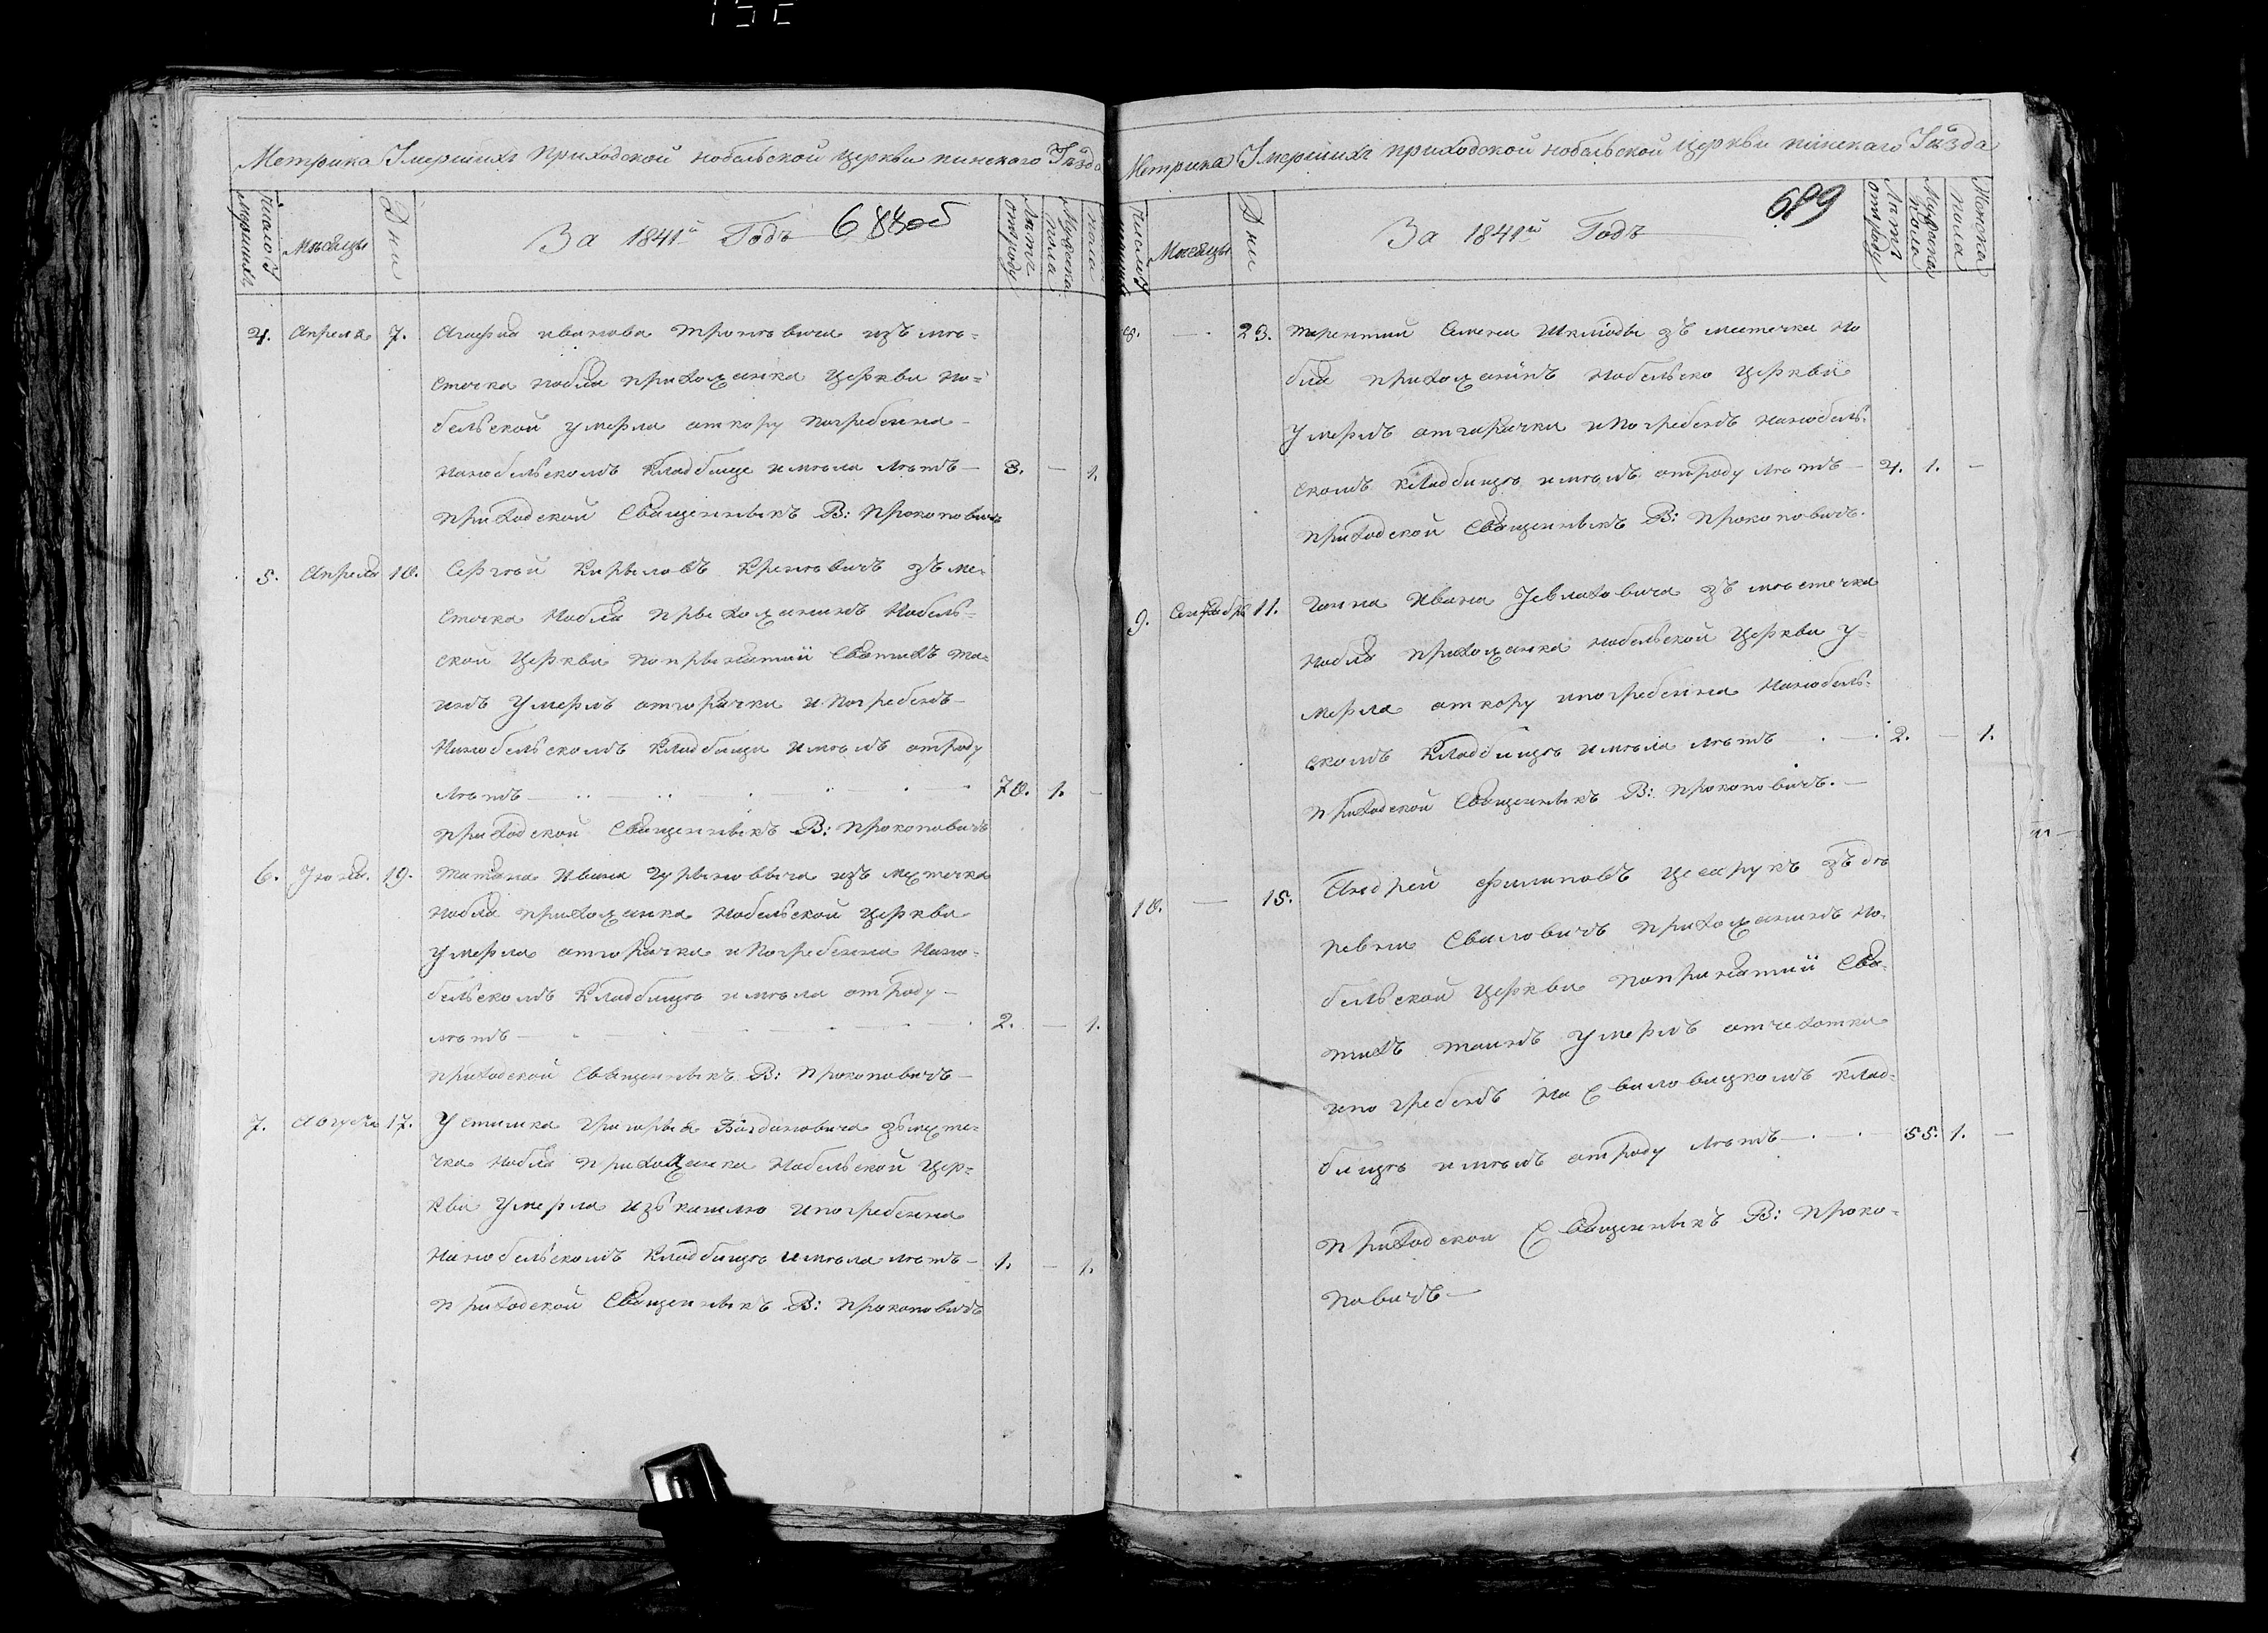 Метрика Умершихъ приходской нобельской церкви пинского Уѣзда
Число Умершихъ
Мѣсяцы
Дни
За 1841й Годъ
688об
Лѣта отроду
Мужеска пола
пола
4. Апреля 7. Агафия иванова Трохновича изъ мѣ-
стечка нобля прихожанка церкви но-
бельской умерла откору погребенна
Нанобельскомъ Кладбище имѣла лѣтъ — 3. — 1.
приходской Священныкъ В: Прокоповичъ
5. Апреля 10. Сергѣй Кирыловъ Креновичъ зъ ме-
стечка Нобля прыхожанинъ Нобель-
ской Церкви попрынятии Святихъ та-
инъ Умерлъ отгорячки и Погребенъ
Нанобельскомъ Кладбищи имѣлъ отроду
лѣтъ — 70. 1. —
приходской Священныкъ В: Прокоповичъ
6. Июня. 19. Татяна Ивана Гурыновыча изъ мѣстечка
Нобля прихожанка Нобельской церкви
умерла отгорячка и Погребенна Нано-
бельскомъ Кладбищѣ имѣла отроду
лѣтъ — 2. — 1.
приходской Священныкъ В: Прокоповичъ
7. Августа 17. Устимка Григорыя Богдановича зъмѣсте-
чка Нобля прихожанка Нобельской Цер-
кви Умерла изъ кашлю ипогребенна
Нанобельскомъ Кладбищѣ имѣла лѣтъ — 1. — 1.
приходской Священныкъ В: Прокоповичъ
Метрика Умершихъ приходской нобельской церкви пинского Уѣзда
Число
Мѣсяцы
Дни
За 1841й Годъ
689
Лѣта отроду
Мужеска пола
Женска пола
8. — 23. терентий Семена Шклюды зъ местечка Но
бля прихожанинъ Нобельско церкви
Умерлъ отгарячки иПогребенъ Нанобель-
скомъ кладбищѣ имѣлъ отроду лѣтъ — 4. 1. —
приходской Священныкъ В: Прокоповичъ.
9. 11. Ганна Ивана Уевлаховича зъ мѣстечка
Нобля прихожанка нобельской Церкви у-
мерла откору ипогребенна Нанобель-
скомъ Кладбищѣ имѣла лѣтъ — 2. — 1.
приходской Священныкъ В: Прокоповичъ. —
10. — 15. Андрей Филиповъ Цесарукъ зъ де
ревни Сваловичъ прихожанинъ Но-
бельской церкви Попринятии Свя-
тихъ таинъ Умерлъ отчахотки
ипогребенъ На Сваловицкомъ клад-
бищѣ имѣлъ отроду лѣтъ — 55. 1. —
приходской Священныкъ В: Проко-
повичъ —